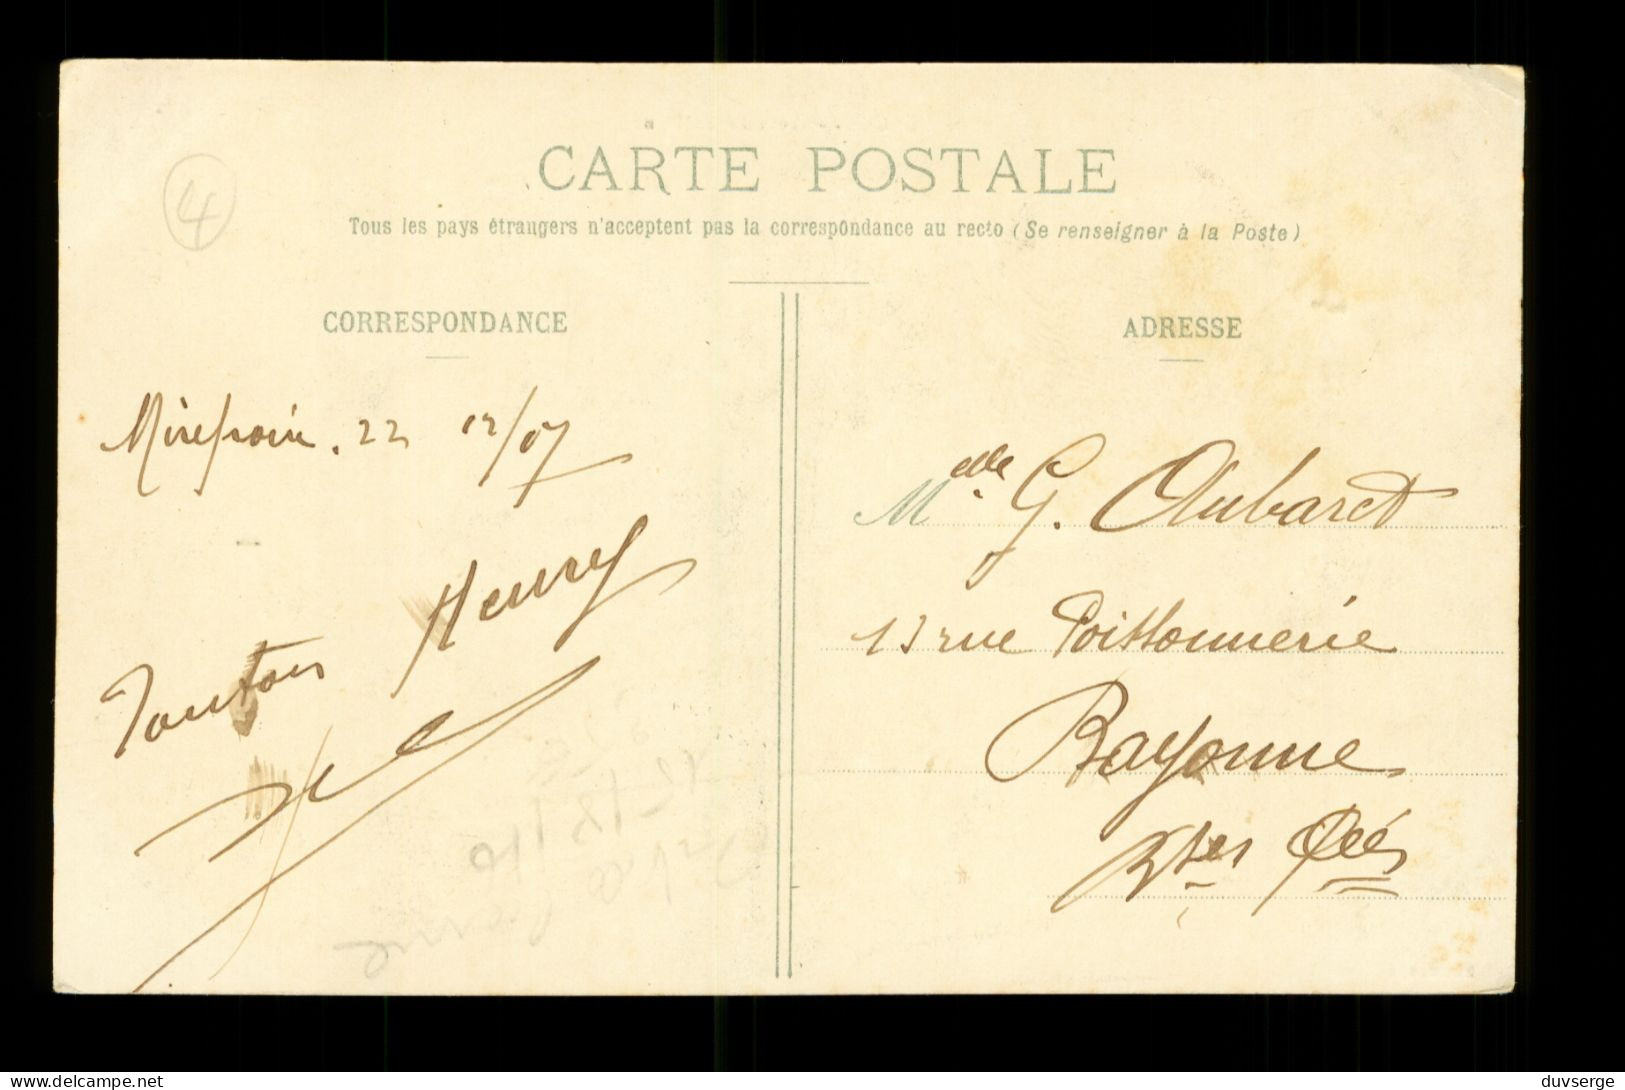 4
CARTE POSTALE
Tous les pays étrangers n'acceptent pas la correspondance au recto (Se renseigner à la Poste)
CORRESPONDANCE
Mirepoix. 22 12/07
Tonton Henry
ADRESSE
Melle. G. Aubaret
13 rue Poissonnerie
Bayonne
Bses Pées
delcampe.net
duvserge